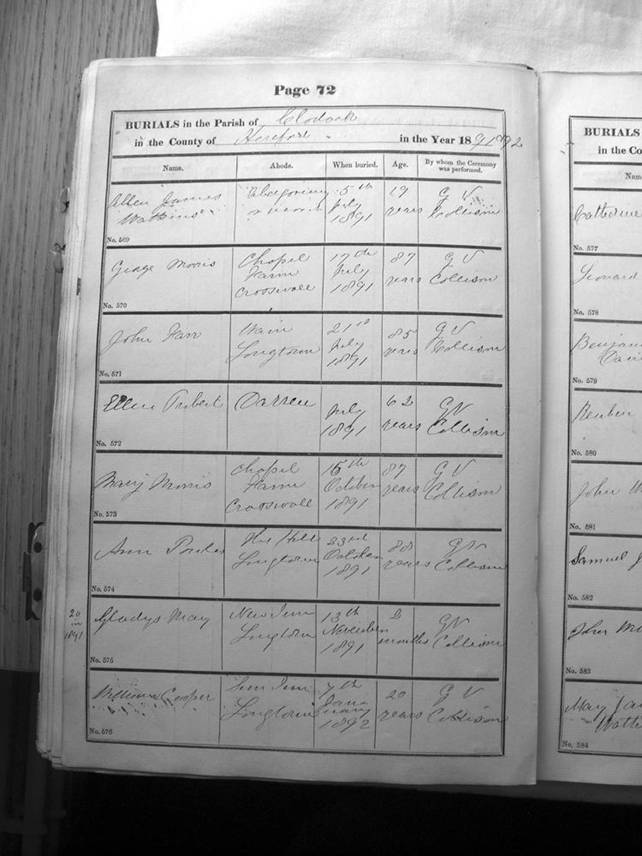 Page 72
BURIALS in the Parish of Clodock
in the County of Hereford in the Year 1891 1892
Name. Abode. When buried. Age. By whom the Ceremony was performed.
Allen James 5th 19 GV
Watkins July years Collison
1891
No. 569
George Morris Chapel 17th 87 GV
Farm July years Collison
Crasswall 1891
No. 570
John Farr 21st 85 GV
Longtown July years Collison
1891
No. 571
Ellen Probert Darren July 62 GV
1891 years Collison
No. 572
Mary Morris Chapel 15th 87 GV
Farm October years Collison
Crasswall 1891
No. 573
Ann 23rd 88 GV
Longtown October years Collison
1891
No. 574
20
in
1891
Gladys May New Inn 13th GV
Longtown November months Collison
1891
No. 575
William Cooper Sun Inn 7th 20 GV
Longtown January years Collison
1892
No. 576
BURIALS
in the Co
Nam
Catherine
No. 577
Leonard
No. 578
Benjam
Davi
No. 579
Reuben
No. 580
John
No. 581
Samuel J
No. 582
John
No. 583
May Ja
Watk
No. 584